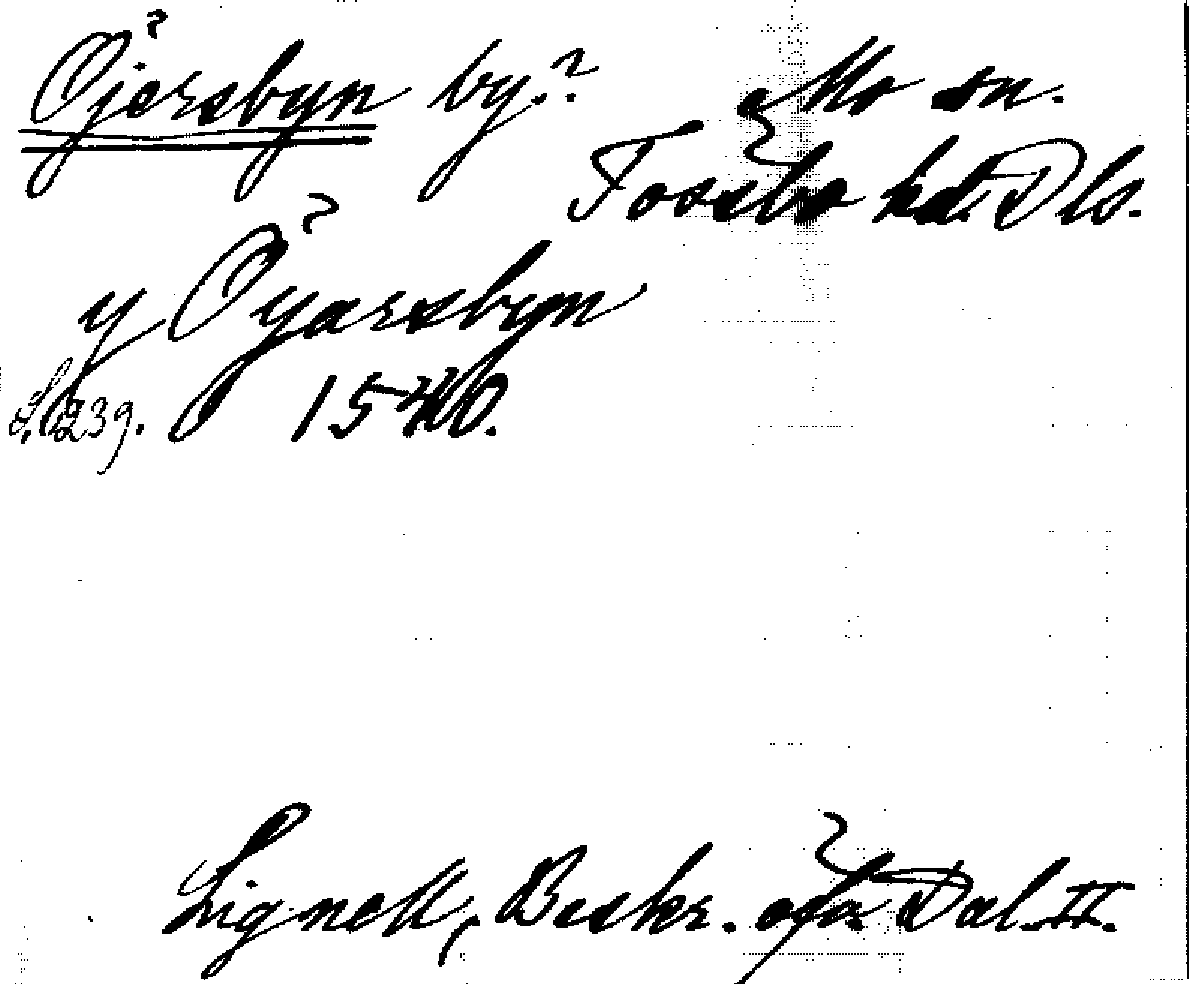 Öjersbyn by.? Mo sn.
Tössbo hd. Dls.
y Öyarsbyn
S. 239. 1540.
Lignell, Beskr. öfv. Dal. II.